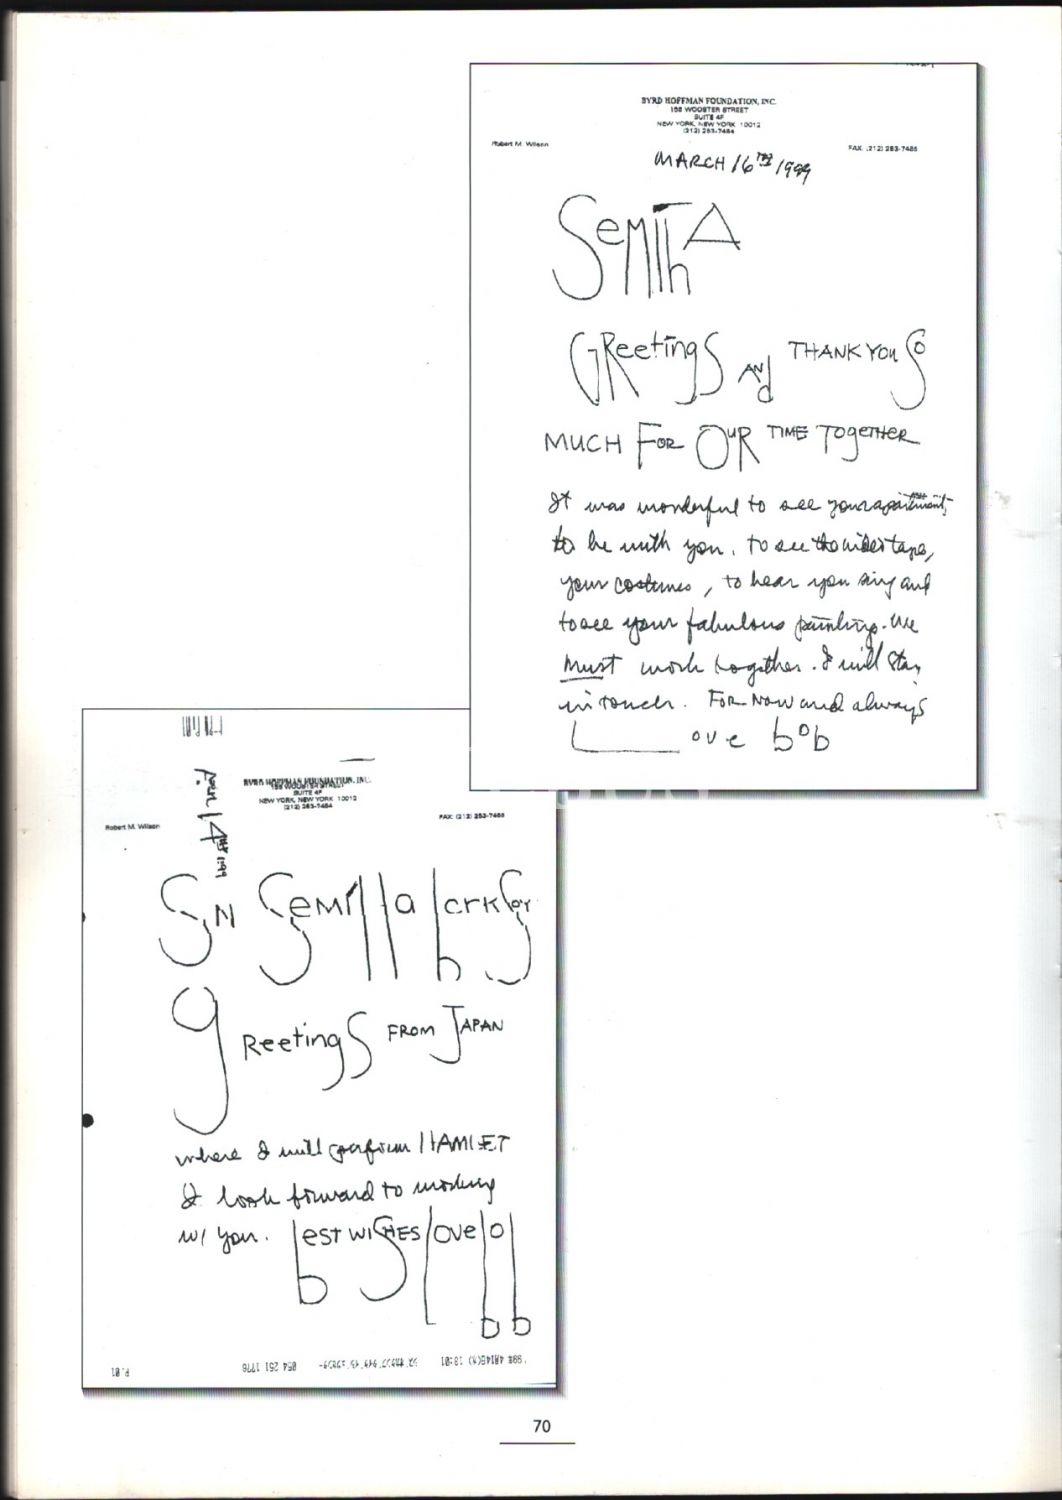 BYRD HOFFMAN FOUNDATION, INC.
155 WOOSTER STREET
SUITE 4F
NEW YORK, NEW YORK 10012
(212) 253-7484
Robert M. Wilson
FAX: (212) 253-7485
MARCH 16TH 1999
SEMIHA
GReetingS AND THANK YOU SO
MUCH FOR OUR TIME TOgETHER
It was wonderful to see your apartment,
to be with you, to see the video tape,
your costumes, to hear you sing and
to see your fabulous paintings. We
must work together. I will stay
in touch. FOR NOW and always
Love bob
APRIL 14TH 1999
BYRD HOFFMAN FOUNDATION, INC.
155 WOOSTER STREET
SUITE 4F
NEW YORK, NEW YORK 10012
(212) 253-7484
Robert M. Wilson
FAX: (212) 253-7485
SN SEMIHa bERKSOY
gReetingS FROM JAPAN
where I will perform HAMLET
I look forward to working
w/ you. bEST WISHES love bob
P.01
054 251 1776
70